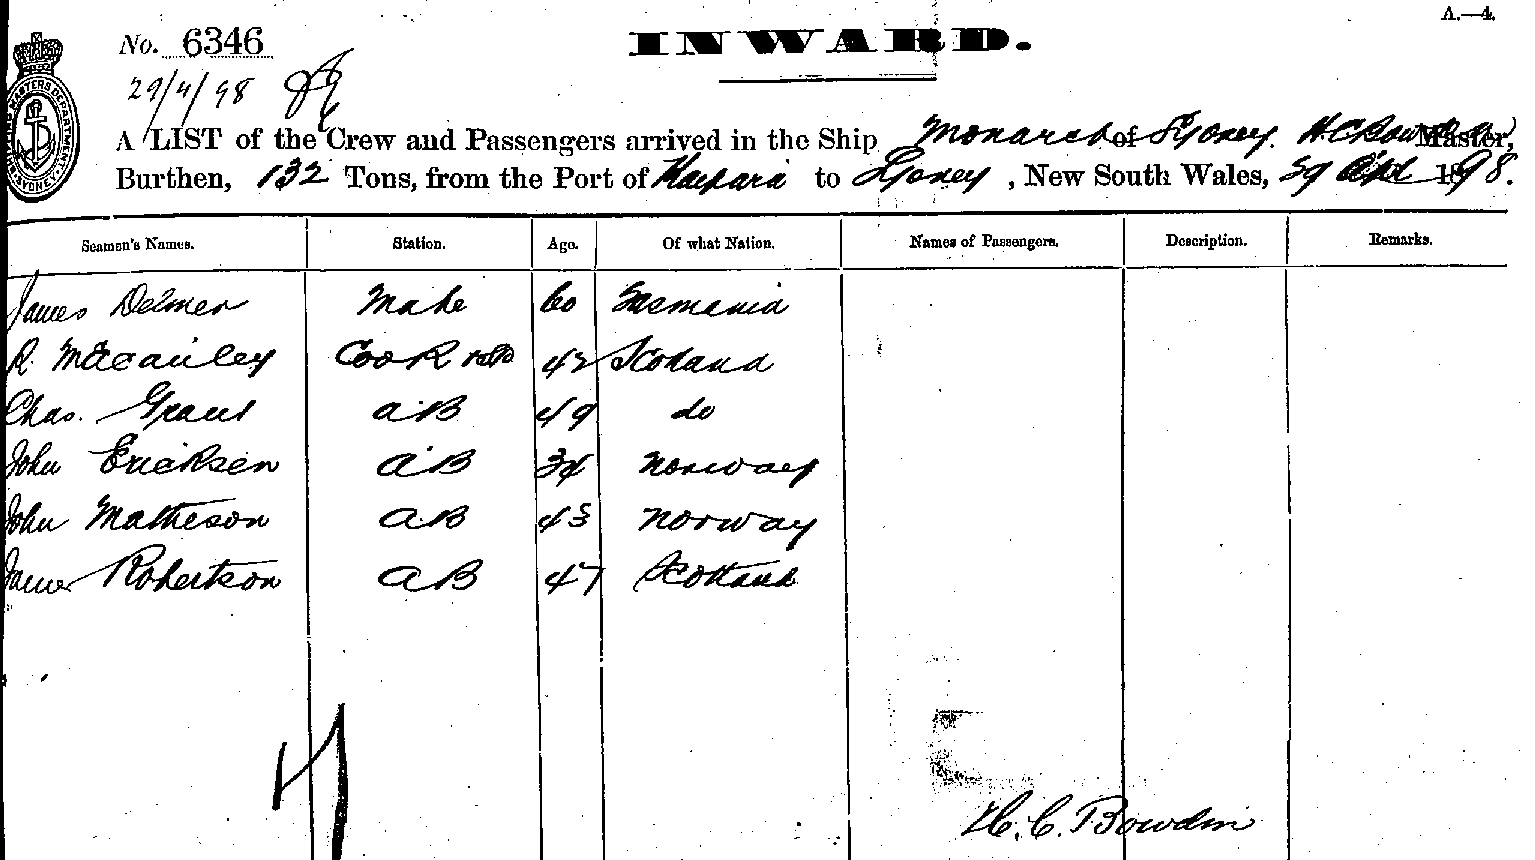 A.—4.
No. 6346
INWARD.
29/4/98
A LIST of the Crew and Passengers arrived in the Ship Monarch of Sydney. H C Bowden Master,
Burthen, 132 Tons, from the Port of Kaipara to Sydney, New South Wales, 29 Apl 1898.
SHIPPING MASTERS DEPARTMENT SYDNEY
Seamen's Names. Station. Age. Of what Nation. Names of Passengers. Description. Remarks.
James Delmer Mate 60 Tasmania
R. Macauley Cook 42 Scotland
Chas. Grant AB 49 do
John Ericksen AB 34 Norway
John Matheson AB 43 Norway
James Robertson AB 47 Scotland
H. C. Bowden